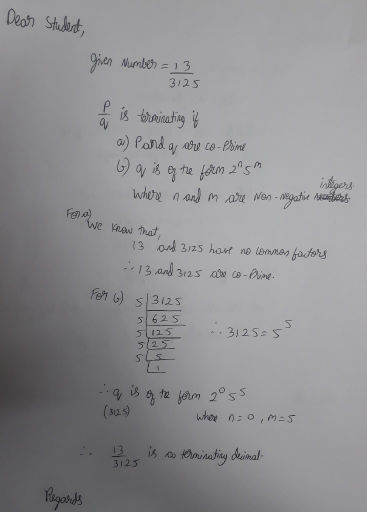 Dear Student,
Given Number = 13/3125
P/q is terminating if
a) P and q are co-Prime
b) q is of the form 2^n 5^m
integers
where n and m are Non-negative
For a)
We know that,
13 and 3125 have no common factors
∴ 13 and 3125 are co-Prime.
For b) 5 | 3125
5 | 625
5 | 125 ∴ 3125 = 5^5
5 | 25
5 | 5
1
∴ q is of the form 2^0 5^5
(3125) where n = 0, m = 5
∴ 13/3125 is a terminating decimal.
Regards